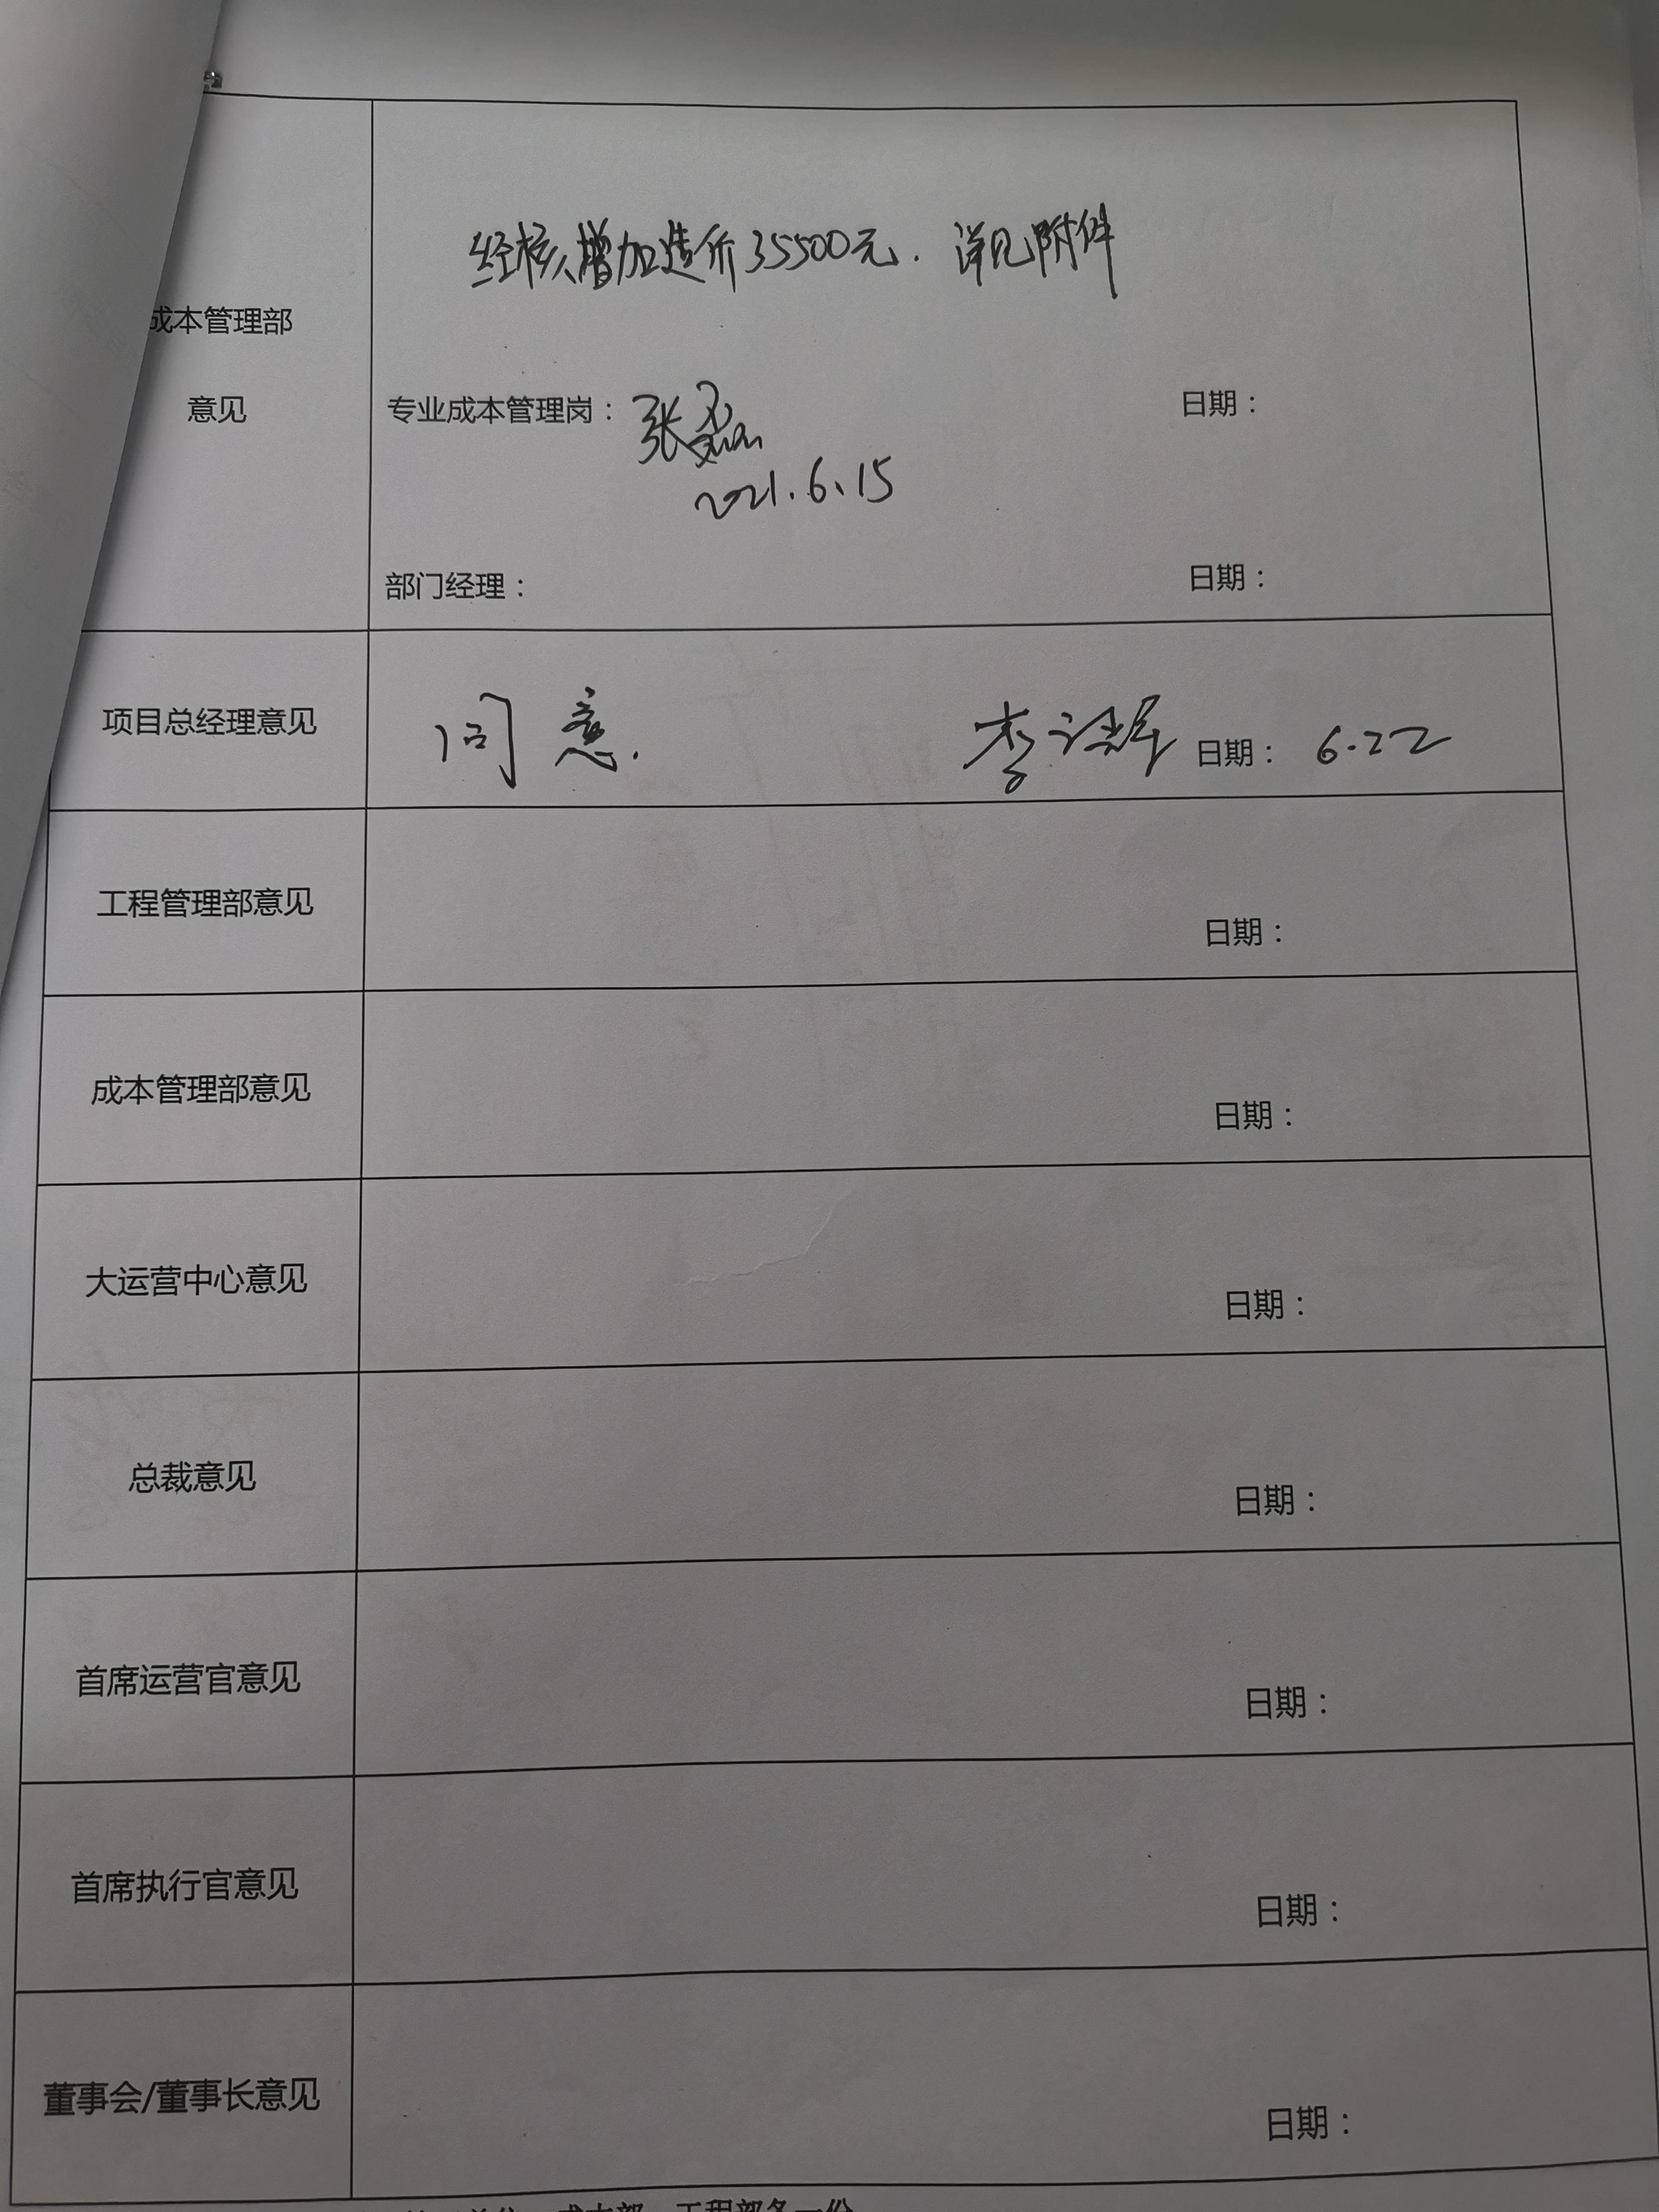 经核增加造价35500元. 详见附件
成本管理部
意见
专业成本管理岗：张
日期：
2021.6.15
部门经理：
日期：
项目总经理意见
同意.
李
日期：6.22
工程管理部意见
日期：
成本管理部意见
日期：
大运营中心意见
日期：
总裁意见
日期：
首席运营官意见
日期：
首席执行官意见
日期：
董事会/董事长意见
日期：
成本部、工程部各一份